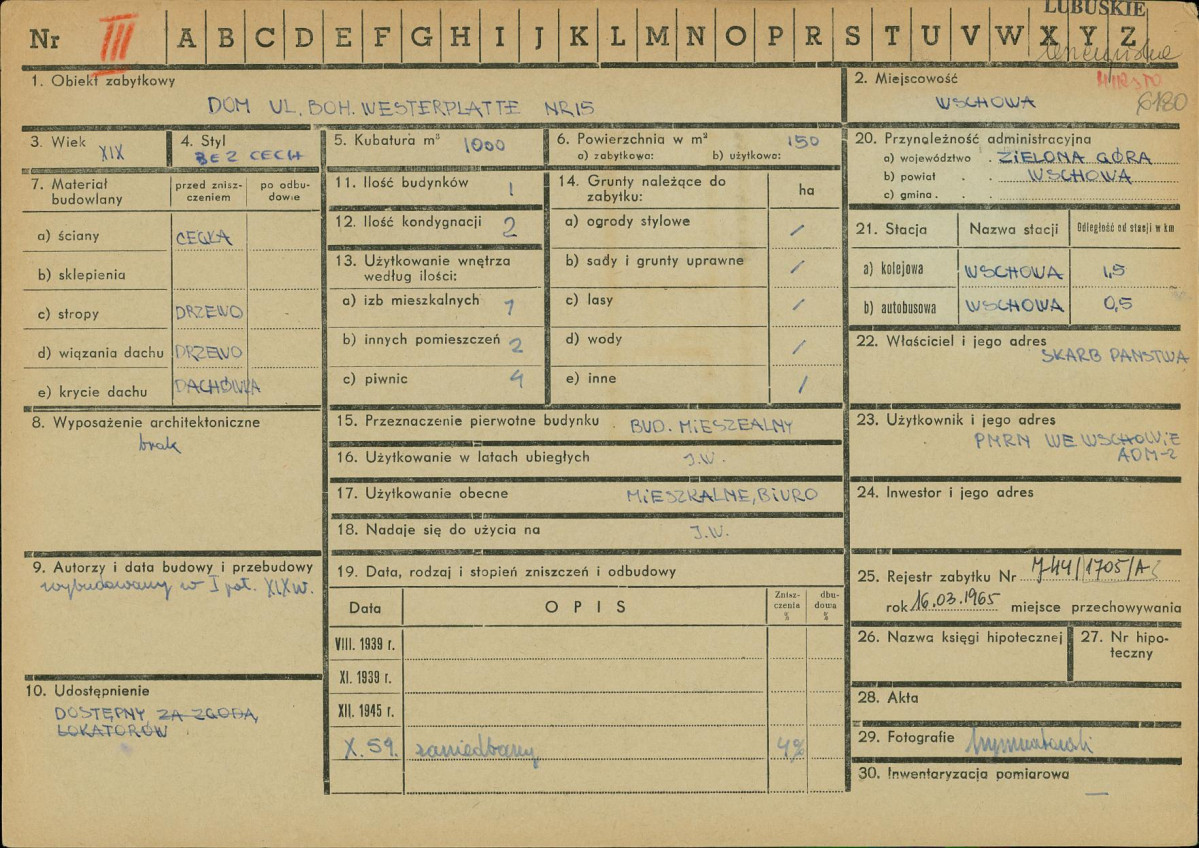 LUBUSKIE
Nr III A B C D E F G H I J K L M N O P R S T U V W X Y Z
1. Obiekt zabytkowy
DOM UL. BOH. WESTERPLATTE NR 15
2. Miejscowość
MIASTO
WSCHOWA
6180
3. Wiek
XIX
4. Styl
BEZ CECH
5. Kubatura m³ 1000
6. Powierzchnia w m² 150
a) zabytkowa: b) użytkowa:
20. Przynależność administracyjna
a) województwo . ZIELONA GÓRA
b) powiat . . WSCHOWA
c) gmina . . .
7. Materiał budowlany
przed zniszczeniem
po odbudowie
a) ściany CEGŁA
b) sklepienia
c) stropy DRZEWO
d) wiązania dachu DRZEWO
e) krycie dachu DACHÓWKA
11. Ilość budynków 1
12. Ilość kondygnacji 2
13. Użytkowanie wnętrza
według ilości:
a) izb mieszkalnych 7
b) innych pomieszczeń 2
c) piwnic 4
14. Grunty należące do
zabytku:
ha
a) ogrody stylowe /
b) sady i grunty uprawne /
c) lasy /
d) wody /
e) inne /
21. Stacja
Nazwa stacji
Odległość od stacji w km
a) kolejowa WSCHOWA 1,5
b) autobusowa WSCHOWA 0,5
22. Właściciel i jego adres
SKARB PAŃSTWA
8. Wyposażenie architektoniczne
brak
15. Przeznaczenie pierwotne budynku BUD. MIESZKALNY
16. Użytkowanie w latach ubiegłych J.W.
17. Użytkowanie obecne MIESZKALNE, BIURO
18. Nadaje się do użycia na J.W.
23. Użytkownik i jego adres
PMRN WE WSCHOWIE
ADM-2
24. Inwestor i jego adres
9. Autorzy i data budowy i przebudowy
wybudowany w I poł. XIX w.
10. Udostępnienie
DOSTĘPNY ZA ZGODĄ
LOKATORÓW
19. Data, rodzaj i stopień zniszczeń i odbudowy
Data
OPIS
Zniszczenia %
dbudowa %
VIII. 1939 r.
XI. 1939 r.
XII. 1945 r.
X. 59. zaniedbany 4%
25. Rejestr zabytku Nr 744/1705/A
rok 16.03.1965 miejsce przechowywania
26. Nazwa księgi hipotecznej
27. Nr hipoteczny
28. Akta
29. Fotografie
30. Inwentaryzacja pomiarowa
—